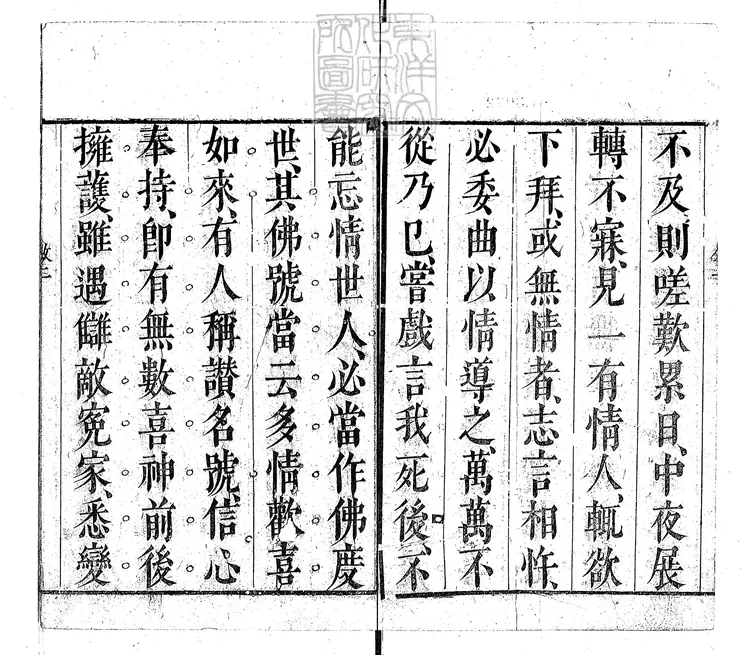 不及、則嗟歎累日、中夜展
轉不寐、見一有情人、輒欲
下拜、或無情者、志言相忤、
必委曲以情導之、萬萬不
從乃已、嘗戲言我死後、不
能忘情世人、必當作佛度
世、其佛號當云多情歡喜
如來、有人稱讚名號、信心
奉持、卽有無數喜神前後
擁護、雖遇讎敵寃家、悉變